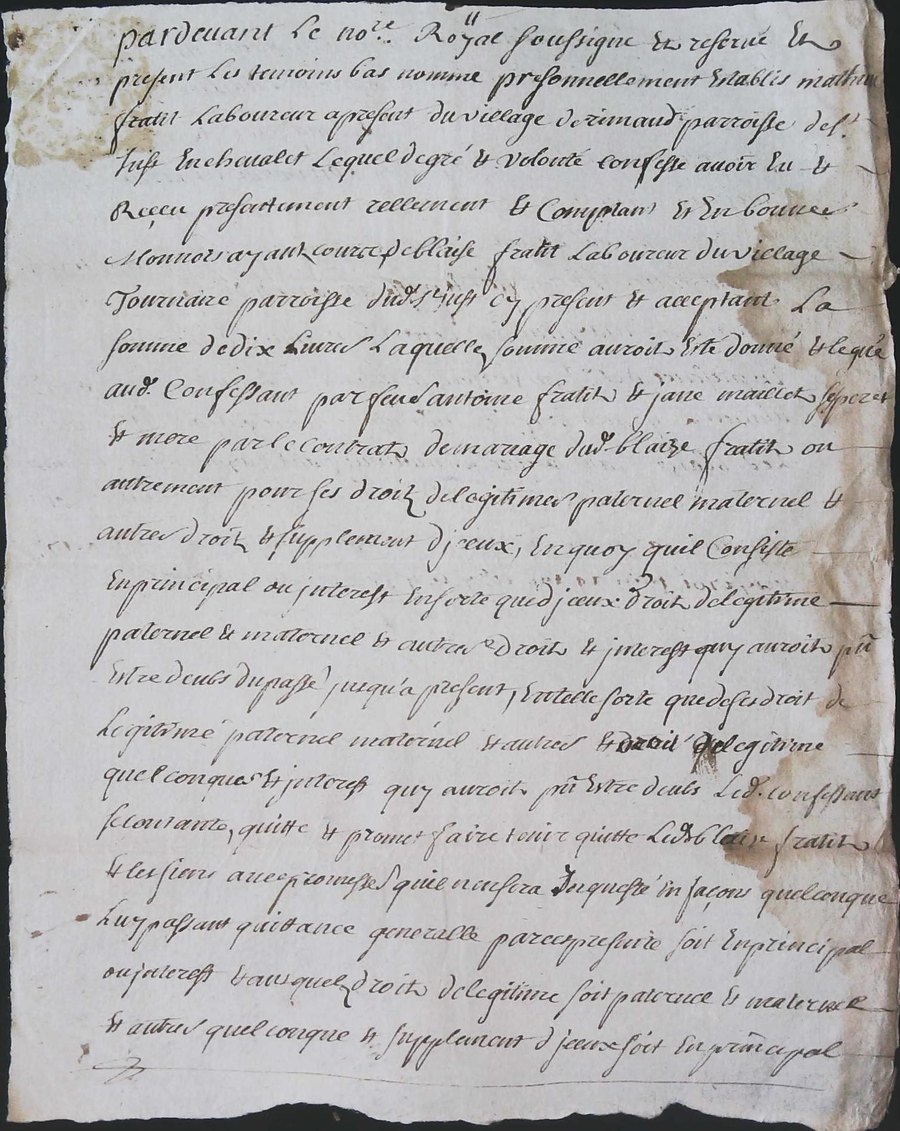 pardevant Le no.re Royal soussigne et reservé Et
present Les temoins bas nomme personnellement Establis mathieu
fratit Laboureur apresent du village de rimaud parroisse de st.
Just En chevalet Lequel de gré et volonté confesse avoir Eu et
Receu presentement rellement et Comptant Et En bonnes
Monnois ayant cource de blaise fratit Laboureur du village
Tournaire parroisse dud. st Just cy present et acceptant La
somme de dix Livres Laquelle somme auroit Esté donné et legué
aud. Confessant par feus antoine fratit et jane maillet ses pere
et mere par le contrat de mariage dud. blaize fratit ou
autrement pour ses droit de legitimes paternel maternel et
autres droit et supplement djceux, En quoy quil Consiste
En principal ou jnterest En sorte que djceux droit de legitime
paternel et maternel et autres droit et jnterest quy auroit pû
Estre deubs du passé jusqu'a present, En telle sorte que de ses droit de
Legitimé paternel maternel et autres et de legitime
quelconques et jnterest quy auroit pû Estre deubs Led. confessant
se contante, quitte et promet faire tenir quitte Led. blaise fratit
et les siens avec promesses quil nen sera Inquesté en façons quelconque
Luy passant quittance generalle par ces presente soit En principal
ou jnterest et ausquel droit de legitime soit paternel et maternel
et autres quelconque et supplement djceux soit En principal